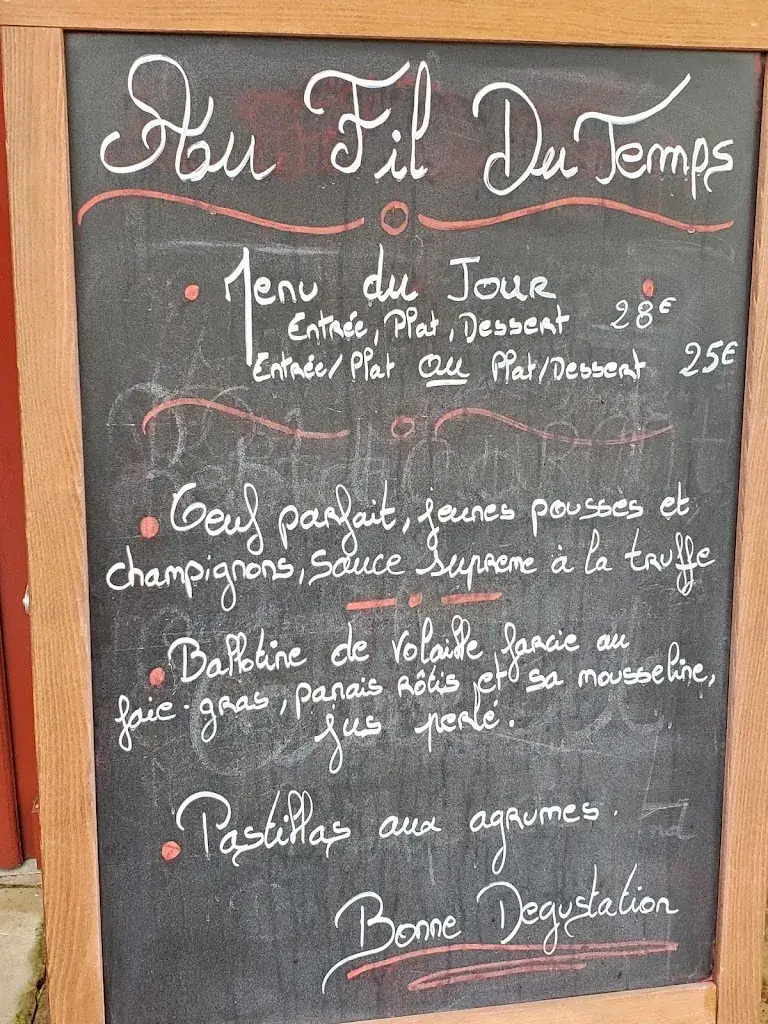 Au Fil Du Temps
Menu du Jour
Entrée, Plat, Dessert 28€
Entrée/Plat ou Plat/Dessert 25€
Oeuf parfait, jeunes pousses et
champignons, sauce suprême à la truffe
Ballotine de volaille farcie au
foie-gras, panais rôtis et sa mousseline,
jus perlé.
Pastillas aux agrumes.
Bonne Degustation